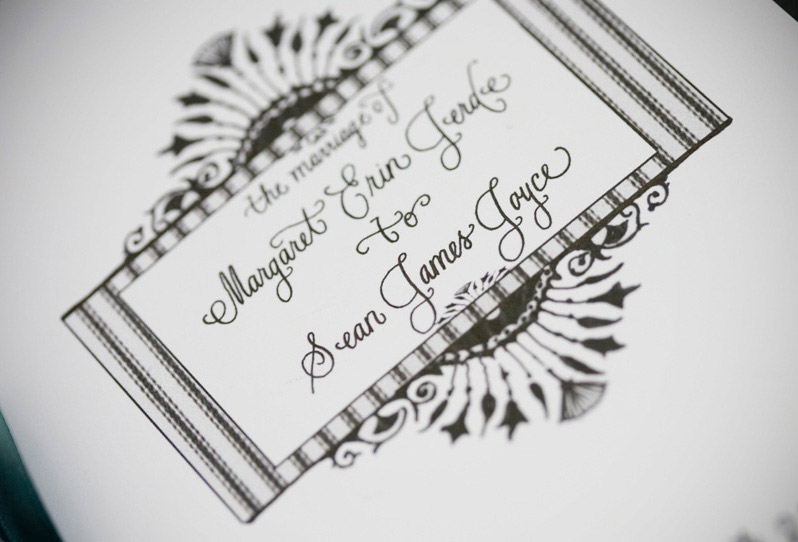 the marriage of
Margaret Erin Jerde
to
Sean James Joyce